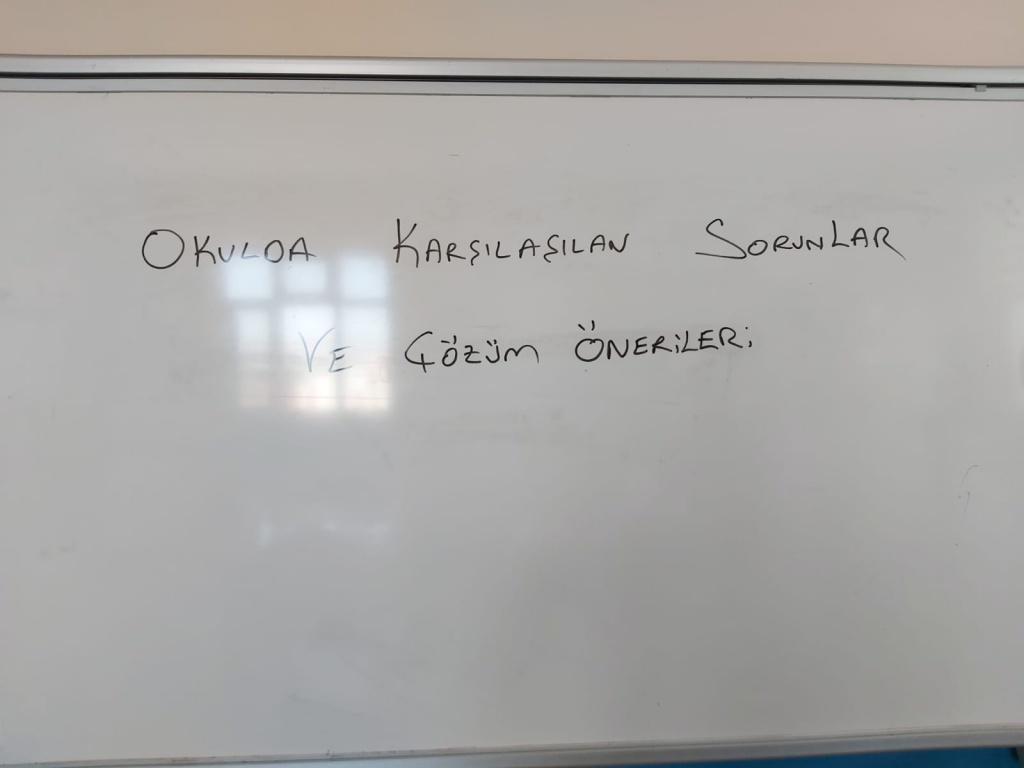 OKULDA KARŞILAŞILAN SORUNLAR
VE ÇÖZÜM ÖNERİLERİ